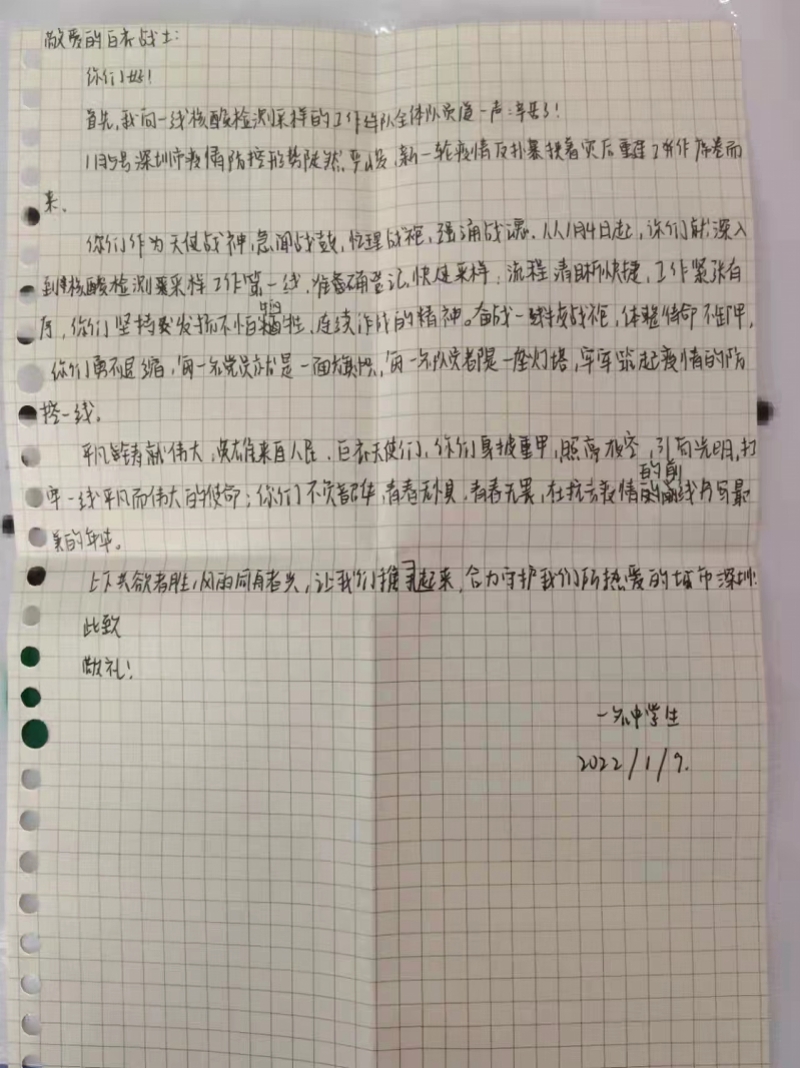 敬爱的白衣战士:
你们好!
首先,我向一线核酸检测采样的工作组队全体队员道一声:辛苦了!
1月5号深圳市疫情防控形势陡然严峻,新一轮疫情反扑裹挟着灾后重建工作席卷而
来。
你们作为天使战神,急闻战鼓,忙理战袍,强涌战票。从1月4日起,你们就深入
到核酸检测采样工作第一线,准确登记,快速采样,流程清晰快捷,工作紧张有
序,你们坚持发扬不怕牺牲,连续作战的精神。奋战一线披战袍,体整待命不卸甲,
你们勇不退缩,每一名党员就是一面旗帜,每一名队员都是一座灯塔,牢牢筑起疫情的防
控一线。
平凡铸就伟大,英雄来自人民。白衣天使们,你们身披重甲,照亮夜空,引向光明,打
牢一线平凡而伟大的使命;你们不负韶华,青春无惧,青春无畏,在抗击疫情的前线书写最
美的年华。
上下共欲者胜,风雨同舟者兴,让我们携手起来,合力守护我们所热爱的城市深圳!
此致
敬礼!
一名中学生
2022/1/9.